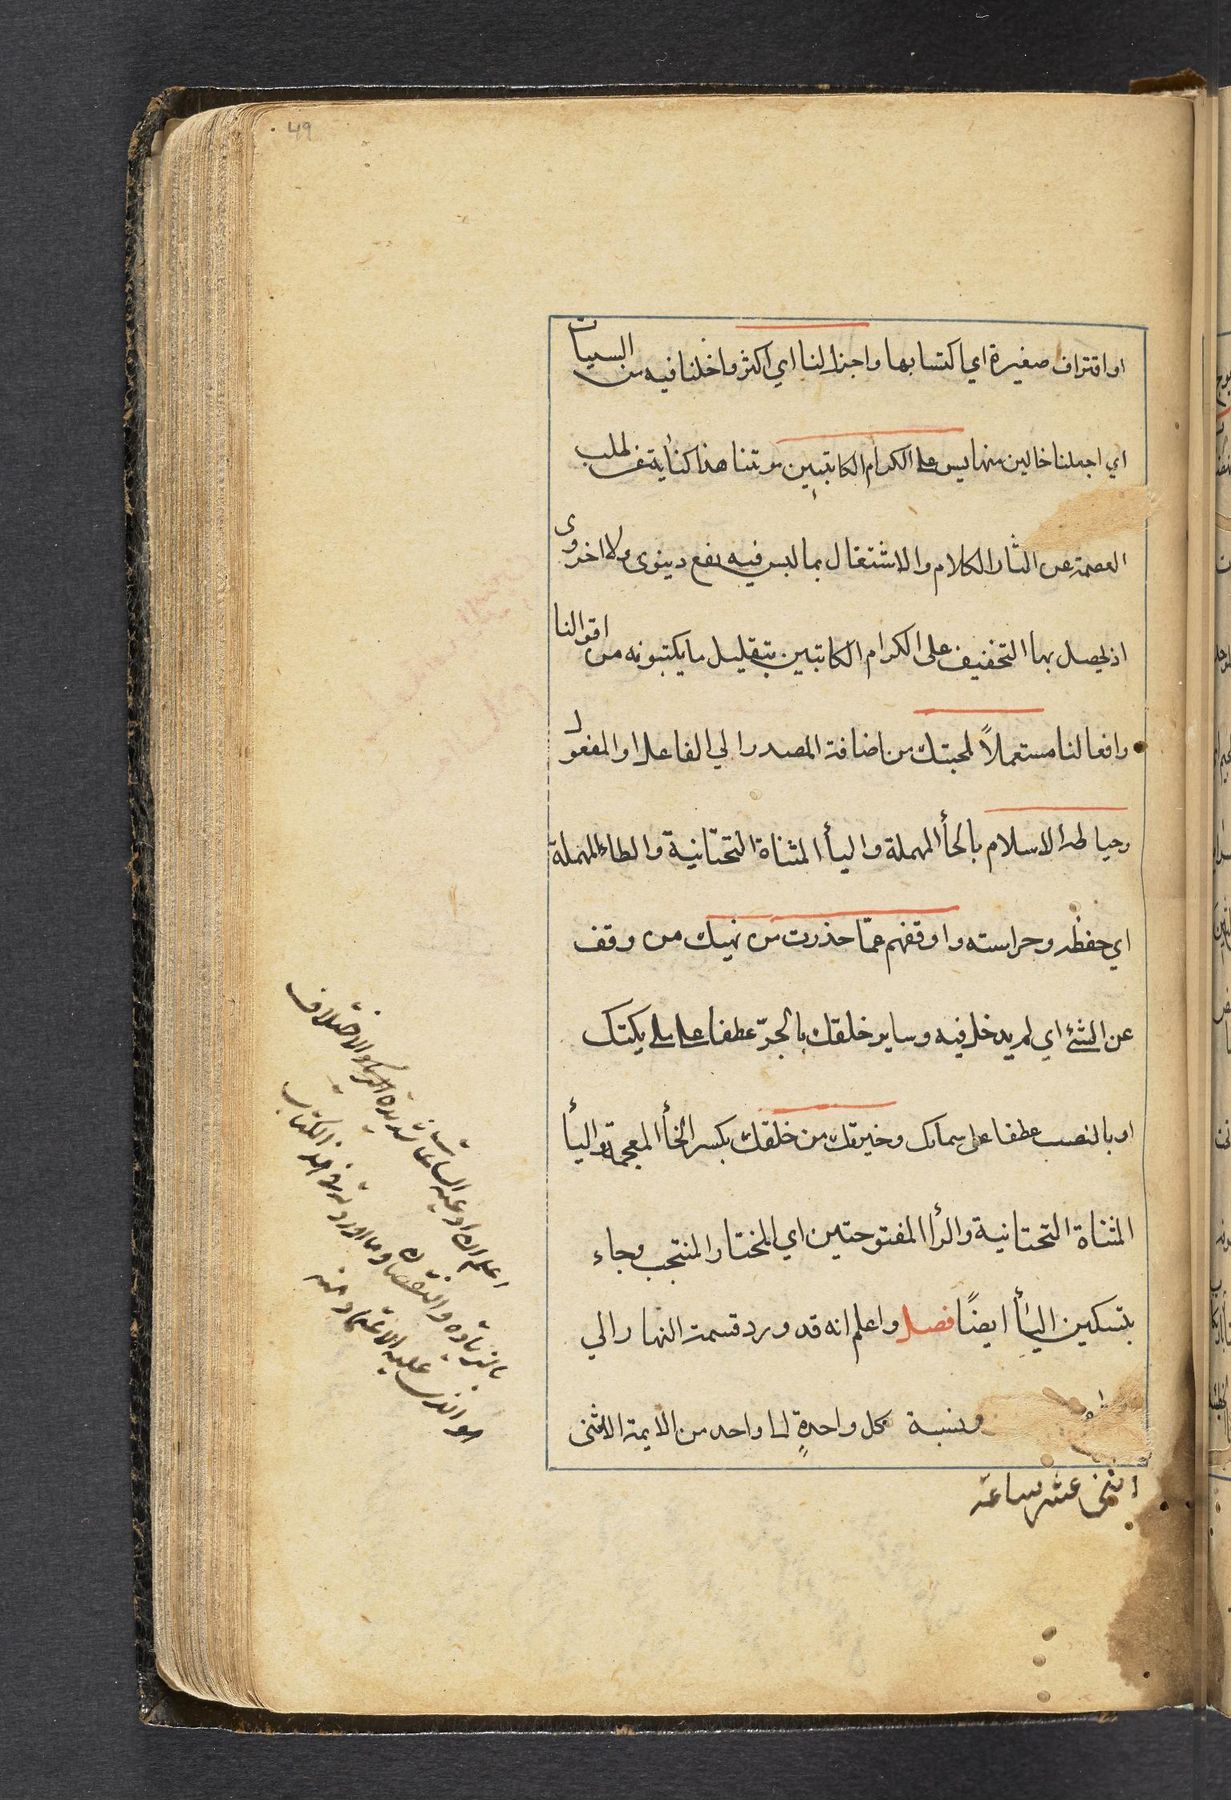 49
او اقتراف صغيرة اي اكتسابها واجزل لنا اي اكثر واخلنا فيه من السيئات
اي اجعلنا خالين منها يسر على الكرام الكاتبين مؤنتنا هذا كناية عن طلب
العصمة عن اكثار الكلام والاشتغال بما ليس فيه نفع دينوى ولا اخروى
اذ يحصل بهما التخفيف على الكرام الكاتبين بتقليل ما يكتبونه من اقوالنا
وافعالنا مستعملاً لمحبتك من اضافة المصدر الي الفاعل او المفعول
وحياطة الاسلام بالحأ المهملة واليأ المثناة التحتانية والطاء المهملة
اي حفظه وحراسته واوقفهم عمّا حذرت من نهيك من وقف
عن الشئ اي لم يدخل فيه وساير خلقك بالجرّ عطفا على ملايكتك
او بالنصب عطفا على سماءك وخيرتك من خلقك بكسر الخأ المعجمة واليأ
المثناة التحتانية والرأ المفتوحتين اي المختار المنتجب وجاء
بتسكين اليأ ايضًا فصل واعلم انه قد ورد قسمة النهار الي
ونسبة كل واحدةٍ الى واحد من الايمة الاثنى
اثنى عشر ساعة
اعلم ان ادعية الساعات شديدة الاختلاف
بالزيادة والنقصان وما اورد في هذا الكتاب
هو الذى عليه الاعتماد منه